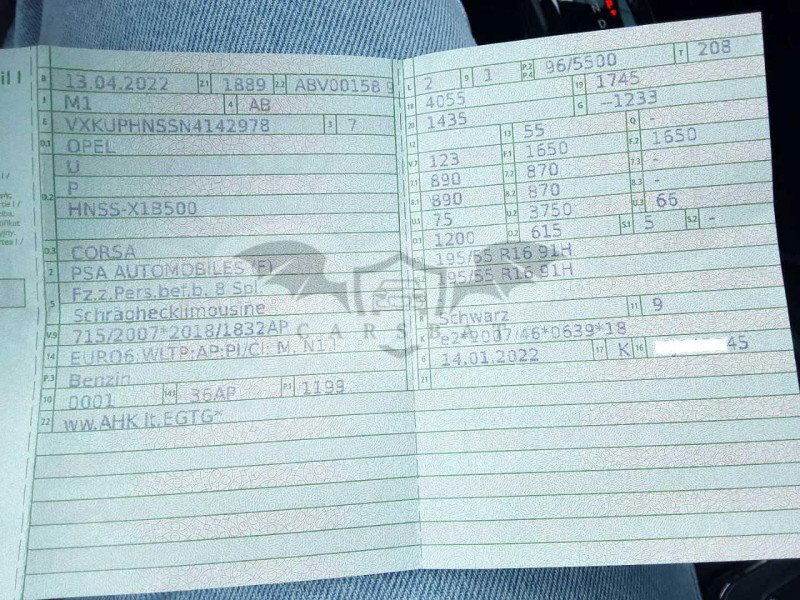 B 13.04.2022 2.1 1889 2.2 ABV00158 9
J M1 4 AB
E VXKUPHNSSN4142978 3 7
D.1 OPEL
U
D.2 P
HNSS-X1B500
D.3 CORSA
2 PSA AUTOMOBILES (F)
Fz.z.Pers.bef.b. 8 Spl.
5 Schräghecklimousine
V.9 715/2007*2018/1832AP
14 EURO6;WLTP;AP;PI/CI; M, N1 I
P.3 Benzin
10 0001 14.1 36AP P.1 1199
22 ww.AHK lt.EGTG*
L 2 9 1 P.2 P.4 96/5500 T 208
18 4055 19 1745
20 1435 G —1233
12 13 55 Q -
V.7 123 F.1 1650 F.2 1650
7.1 890 7.2 870 7.3 -
8.1 890 8.2 870 8.3 -
U.1 75 U.2 3750 U.3 66
O.1 1200 O.2 615 S.1 5 S.2 -
195/55 R16 91H
195/55 R16 91H
R Schwarz 11 9
K e2*2007/46*0639*18
6 14.01.2022 17 K 16 45
21
CARSBAT